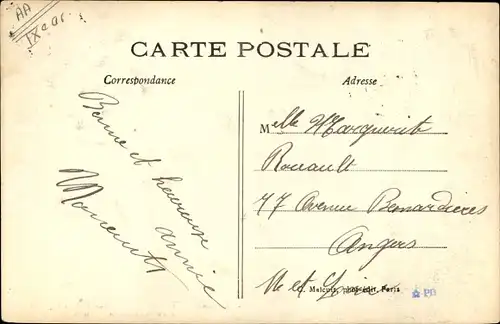 AA
CARTE POSTALE
Correspondance
Adresse
Bonne et heureuse
année
Melle Marguerite
Rouault
77 Avenue Besnardières
Angers
M et Loire
C. Malcuit, phot-édit, Paris
PD